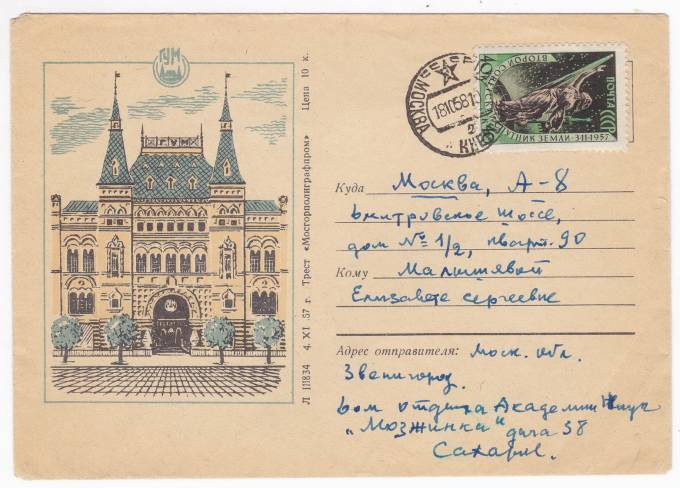 ГУМ
ГУМ
ГУМ
Л 111834 4. XI 57 г. Трест «Мосгорполиграфпром» Цена 10 к.
МОСКВА
181058
2
ПОЧТА СССР
ВТОРОЙ СОВЕТСКИЙ
СПУТНИК ЗЕМЛИ·3·11·1957
Куда Москва, А-8
Дмитровское шоссе,
дом № 1/2, кварт. 90
Кому Малышевой
Елизавете Сергеевне
Адрес отправителя: Моск. обл.
Звенигород.
Дом отдыха Академии Наук
„Мозжинка" дача 38